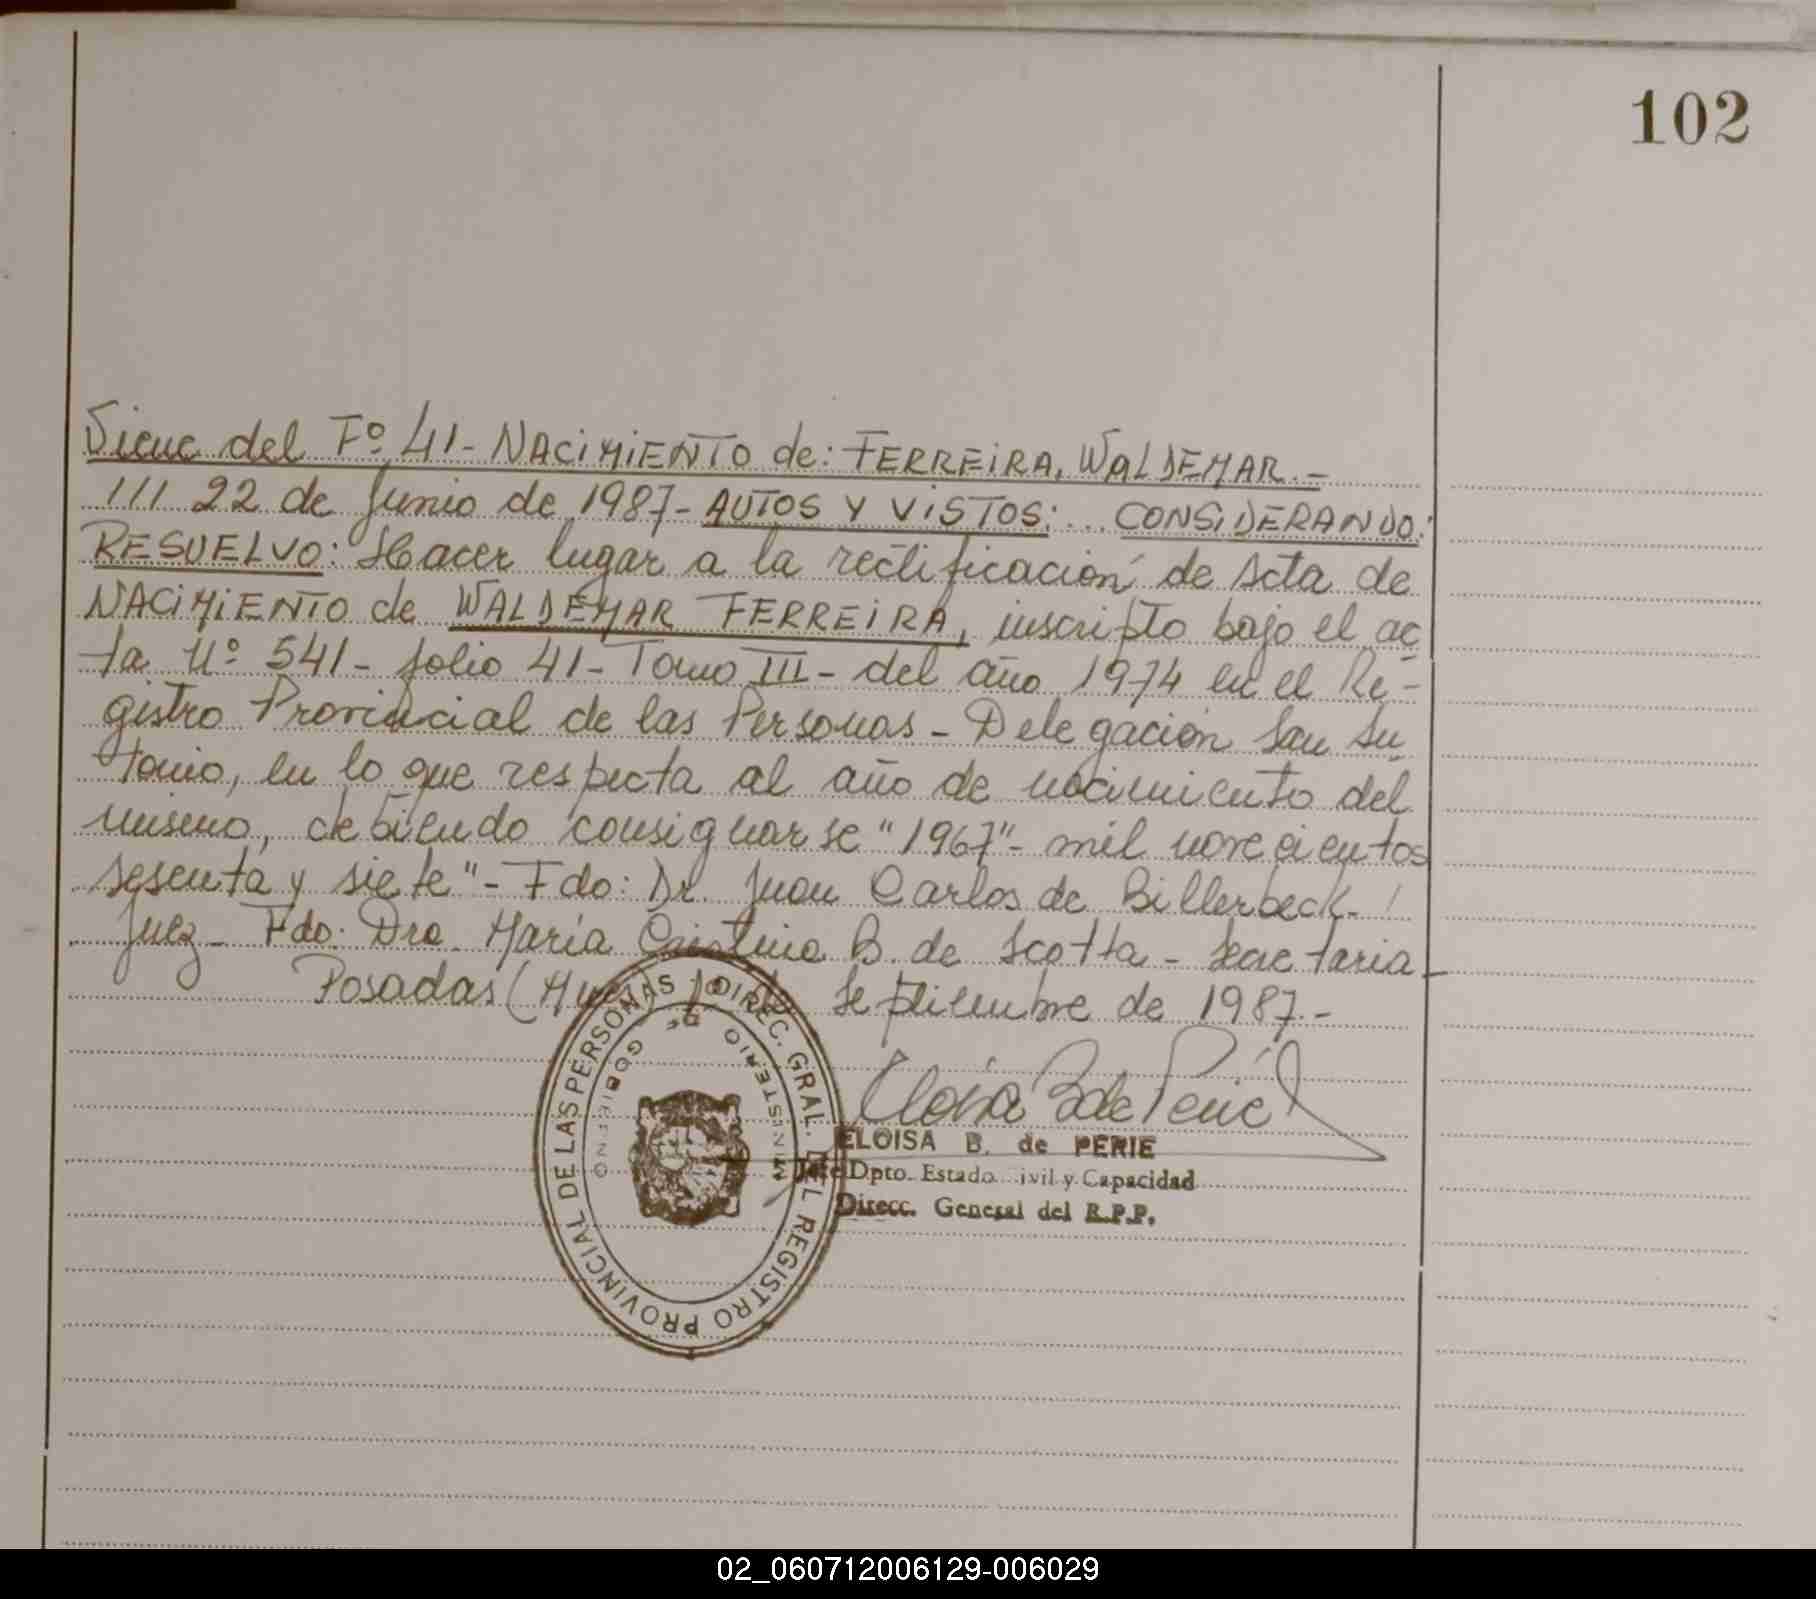 102
Viene del Fº 41- NACIMIENTO de: FERREIRA, WALDEMAR.-
/// 22 de Junio de 1987- AUTOS Y VISTOS:... CONSIDERANDO:
RESUELVO: Hacer lugar a la rectificación de Acta de
NACIMIENTO de WALDEMAR FERREIRA, inscripto bajo el ac
ta Nº 541- folio 41- Tomo III- del año 1974 en el Re-
gistro Provincial de las Personas- Delegación San An
tonio, en lo que respecta al año de nacimiento del
mismo, debiendo consignarse "1967"- mil novecientos
sesenta y siete"- Fdo: Dr. Juan Carlos de Billerbeck-
Juez- Fdo. Dra. María Cristina B. de Scotta- Secretaria-
Posadas ( de Septiembre de 1987.-
Eloisa B de Perié
ELOISA B. de PERIE
Jefe Dpto. Estado ivil y Capacidad
Direcc. General del R.P.P.
DIREC. GRAL. DEL REGISTRO PROVINCIAL DE LAS PERSONAS
MINISTERIO DE GOBIERNO
02_060712006129-006029